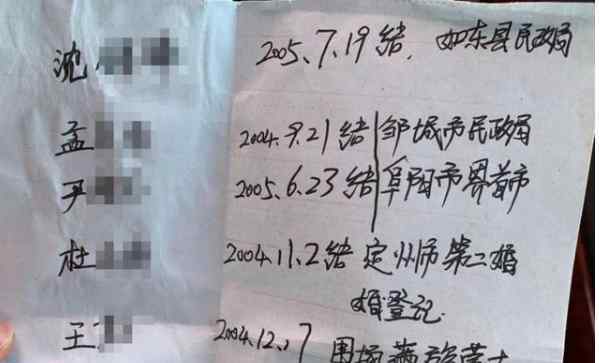 沈 2005.7.19结. 如东县民政局
孟 2004.9.21结 邹城市民政局
尹 2005.6.23结 阜阳市界首市
杜 2004.11.2结 定州市第二婚
婚登记
王 2004.12.17 围场满族